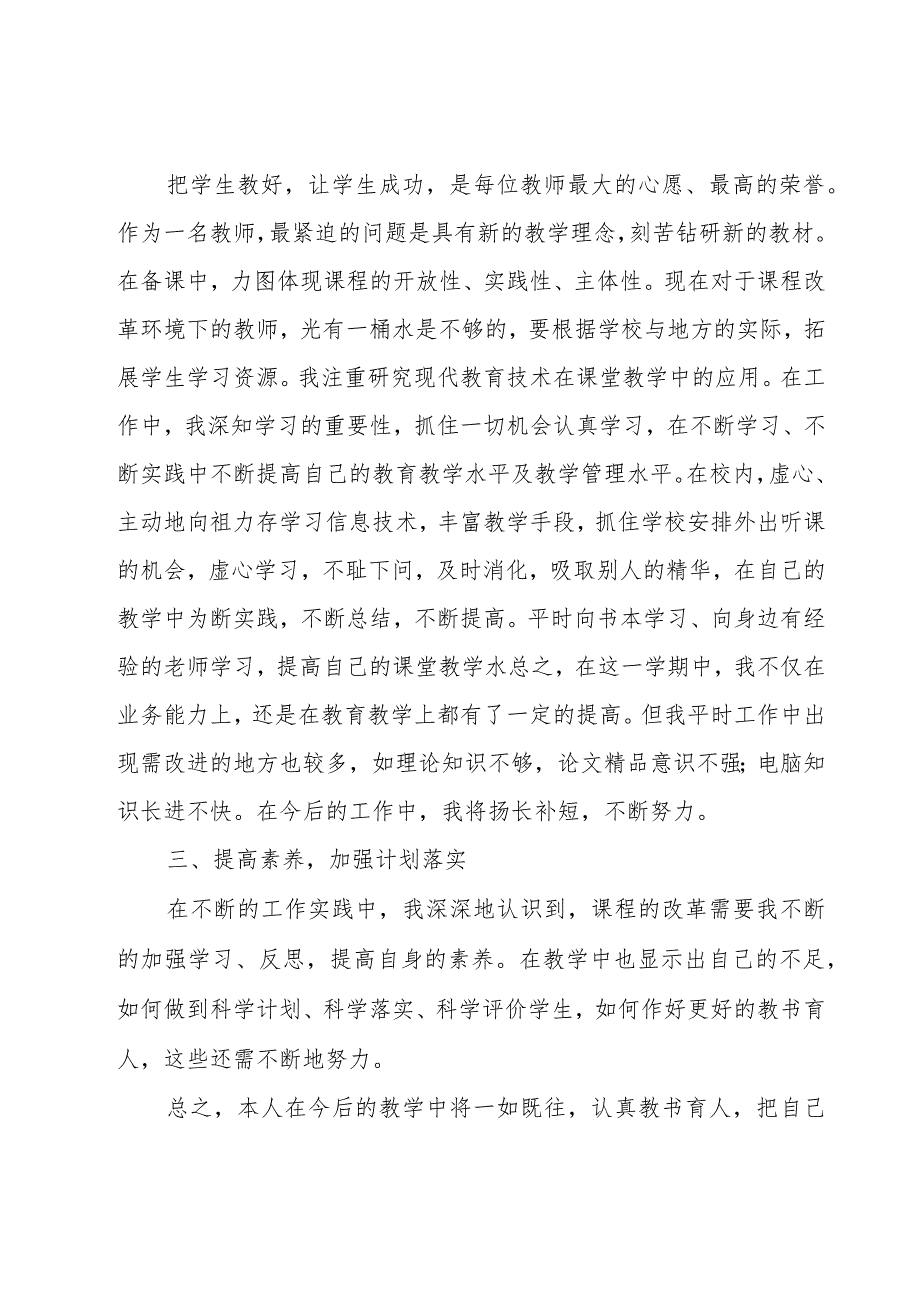 把学生教好，让学生成功，是每位教师最大的心愿、最高的荣誉。
作为一名教师，最紧迫的问题是具有新的教学理念，刻苦钻研新的教材。
在备课中，力图体现课程的开放性、实践性、主体性。现在对于课程改
革环境下的教师，光有一桶水是不够的，要根据学校与地方的实际，拓
展学生学习资源。我注重研究现代教育技术在课堂教学中的应用。在工
作中，我深知学习的重要性，抓住一切机会认真学习，在不断学习、不
断实践中不断提高自己的教育教学水平及教学管理水平。在校内，虚心、
主动地向祖力存学习信息技术，丰富教学手段，抓住学校安排外出听课
的机会，虚心学习，不耻下问，及时消化，吸取别人的精华，在自己的
教学中为断实践，不断总结，不断提高。平时向书本学习、向身边有经
验的老师学习，提高自己的课堂教学水总之，在这一学期中，我不仅在
业务能力上，还是在教育教学上都有了一定的提高。但我平时工作中出
现需改进的地方也较多，如理论知识不够，论文精品意识不强；电脑知
识长进不快。在今后的工作中，我将扬长补短，不断努力。
三、提高素养，加强计划落实
在不断的工作实践中，我深深地认识到，课程的改革需要我不断
的加强学习、反思，提高自身的素养。在教学中也显示出自己的不足，
如何做到科学计划、科学落实、科学评价学生，如何作好更好的教书育
人，这些还需不断地努力。
总之，本人在今后的教学中将一如既往，认真教书育人，把自己